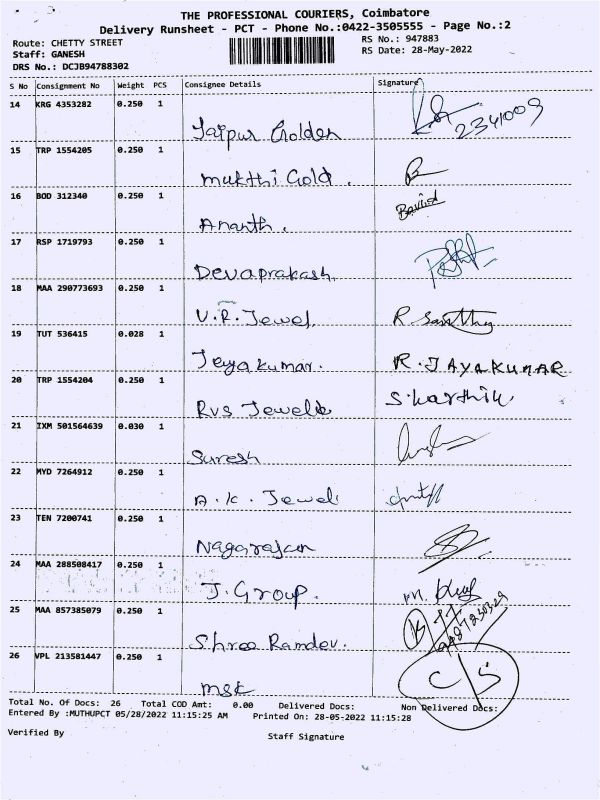 THE PROFESSIONAL COURIERS, Coimbatore
Delivery Runsheet - PCT - Phone No.:0422-3505555 - Page No.:2
Route: CHETTY STREET RS No.: 947883
Staff: GANESH RS Date: 28-May-2022
DRS No.: DCJB94788302
S No Consignment No Weight PCS Consignee Details Signature
14 KRG 4353282 0.250 1
Jaipur Golden 2341009
15 TRP 1554205 0.250 1
mukthi Gold.
16 BOD 312340 0.250 1
Ananth.
17 RSP 1719793 0.250 1
Devaprakash
18 MAA 290773693 0.250 1
V.R. Jewel R Santhy
19 TUT 536415 0.028 1
Jeyakumar. R.JAYAKUMAR
20 TRP 1554204 0.250 1
RVS Jewels S.karthik
21 IXM 501564639 0.030 1
Suresh
22 MYD 7264912 0.250 1
A.K. Jewel
23 TEN 7200741 0.250 1
Nagarajan
24 MAA 288508417 0.250 1
J. Group.
25 MAA 857385079 0.250 1
Shree Ramdev.
26 VPL 213581447 0.250 1
msk C/S
Total No. Of Docs: 26 Total COD Amt: 0.00 Delivered Docs: Non Delivered Docs:
Entered By :MUTHUPCT 05/28/2022 11:15:25 AM Printed On: 28-05-2022 11:15:28
Verified By Staff Signature